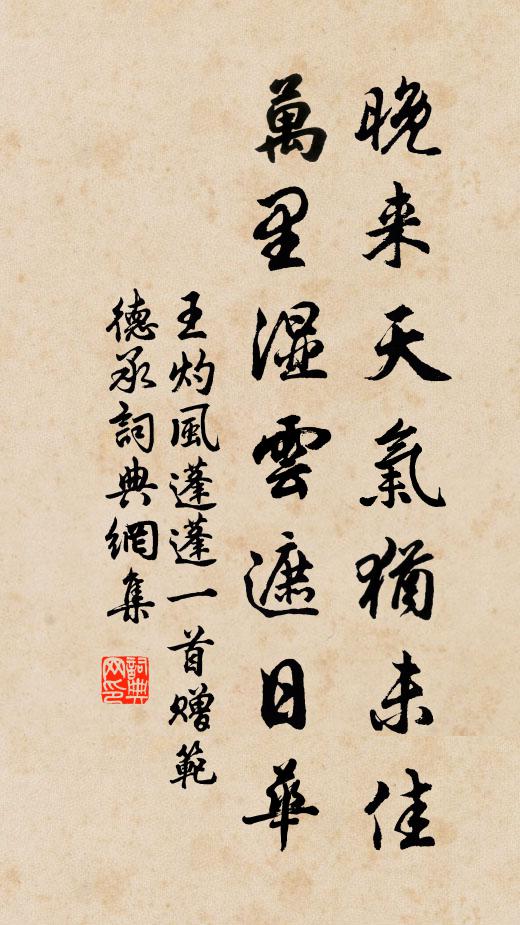 晚来天氣猶未佳
萬里濕雲遮日華
王灼風蓬蓬一首贈範
德承詞典網集
詞典網印